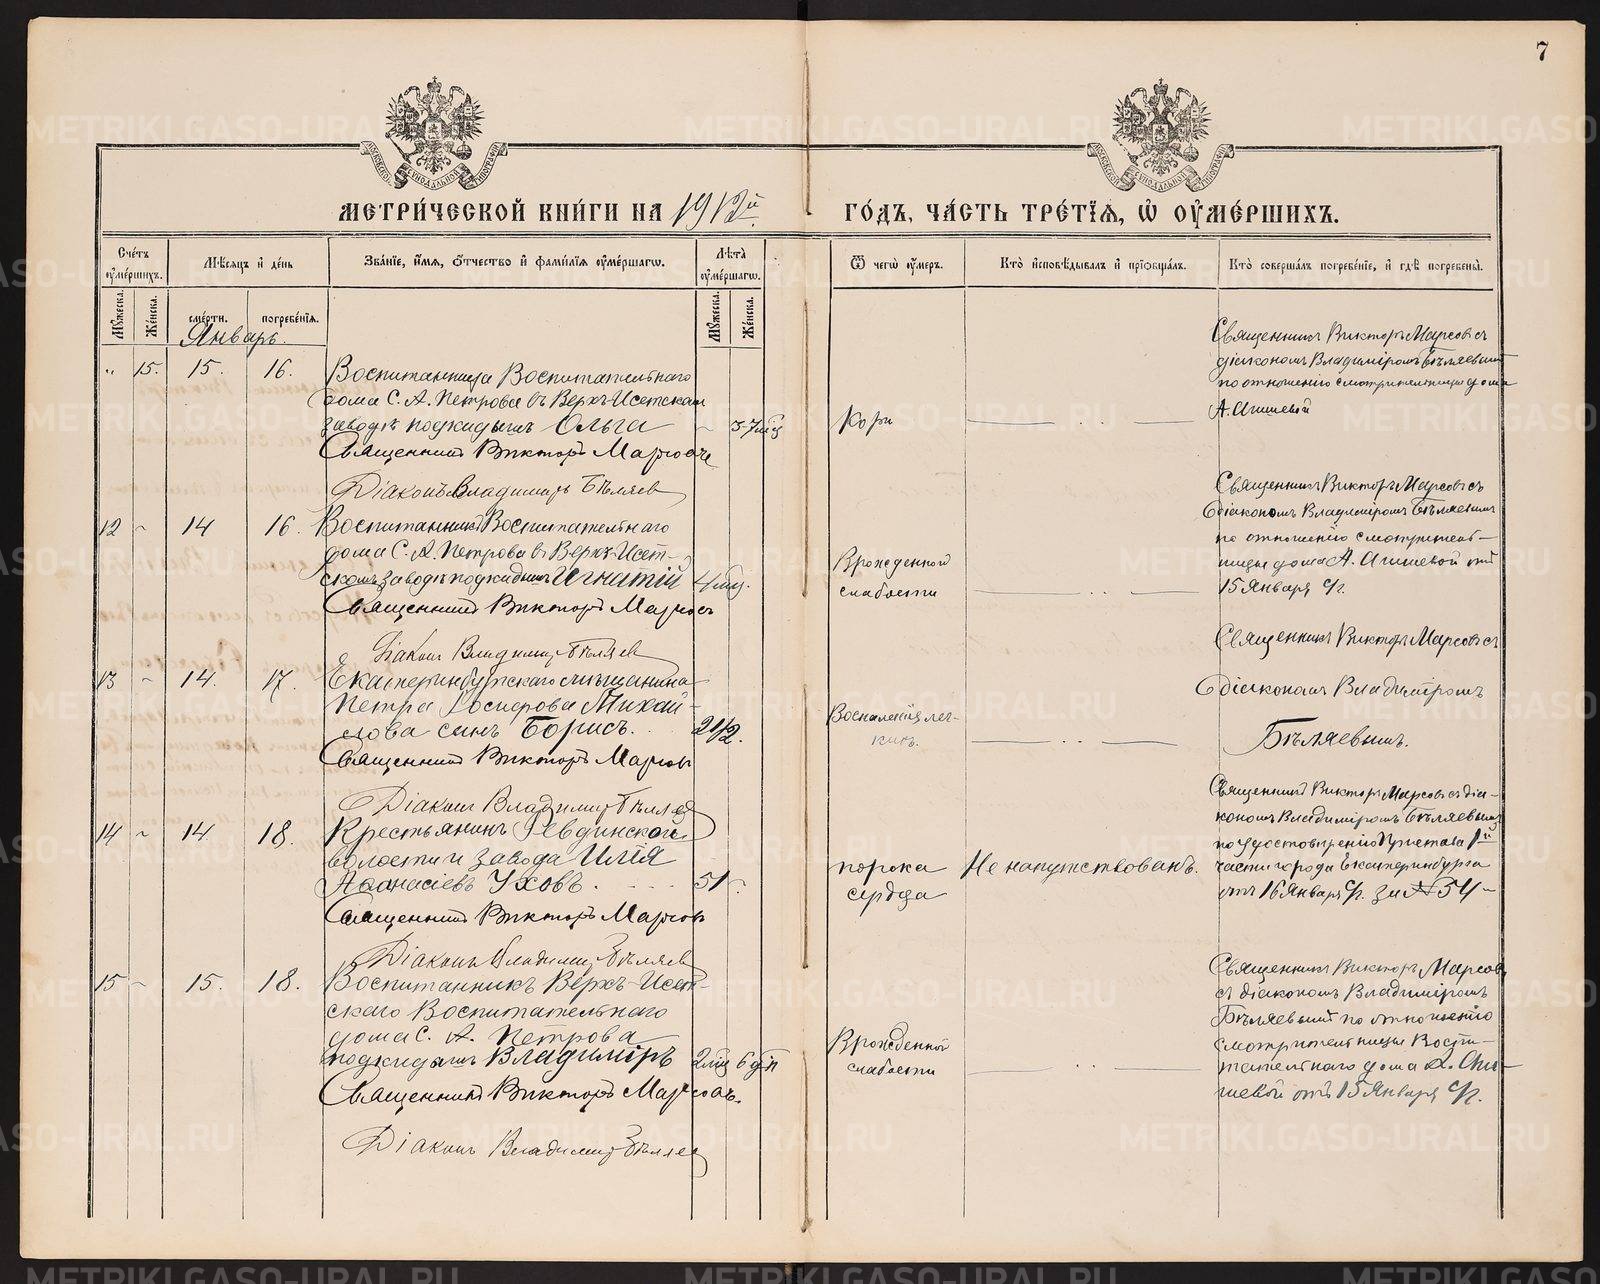 7
МЕТРИ́ЧЕСКОЙ КНИ́ГИ НА 1912й ГО́ДЪ, ЧА́СТЬ ТРЕ́ТІѦ, Ѡ ОУМЕ́РШИХЪ.
Сче́тъ оуме́ршихъ.
Мꙋ́жеска.
Же́нска.
Мѣ́сѧцъ и де́нь
сме́рти.
погребе́нїѧ.
Зва́нїе, и́мѧ, о́тчество и фами́лїѧ оуме́ршагѡ.
Лѣ́та оуме́ршагѡ.
Мꙋ́жеска.
Же́нска.
Ѿ чегѡ̀ оу́меръ.
Кто̀ и́сповѣ́дывалъ и прїобща́лъ.
Кто̀ соверша́лъ погребе́нїе, и гдѣ̀ погребены̀.
Январь.
" 15. 15. 16.
Воспитанница Воспитательнаго
дома С. А. Петрова въ Верхъ-Исетскомъ
заводѣ подкидышъ Ольга
Священникъ Викторъ Марсовъ
Діаконъ Владиміръ Бѣляевъ
Кори
Священникъ Викторъ Марсовъ съ
діакономъ Владиміромъ Бѣляевымъ
по отношенію смотрительницы дома
12 ~ 14 16.
Воспитанникъ Воспитательнаго
дома С. А. Петрова въ Верхъ-Исет-
скомъ заводѣ подкидышъ Игнатій 4 мѣс.
Священникъ Викторъ Марсовъ
Діаконъ Владиміръ Бѣляевъ
Врожденной
слабости
Священникъ Викторъ Марсовъ съ
діакономъ Владиміромъ Бѣляевымъ
по отношенію смотритель-
ницы дома А. отъ
15 Января с/г.
13 ~ 14. 17.
Екатеринбургскаго мѣщанина
Петра Михай-
лова сынъ Борисъ. 2 1/2.
Священникъ Викторъ Марсовъ
Діаконъ Владиміръ Бѣляевъ
Воспаленія лег-
кихъ.
Священникъ Викторъ Марсовъ съ
діакономъ Владиміромъ
Бѣляевымъ.
14 ~ 14. 18.
Крестьянинъ Ревдинской
волости и завода Илія
Аѳанасіевъ Уховъ. 51
Священникъ Викторъ Марсовъ
Діаконъ Владиміръ Бѣляевъ
порока
сердца
Не напутствованъ.
Священникъ Викторъ Марсовъ съ діа-
кономъ Владиміромъ Бѣляевымъ
по удостовѣренію Пристава 1й
части города Екатеринбурга
отъ 16 Января с/г. за № 54
15 ~ 15. 18.
Воспитанникъ Верхъ-Исет-
скаго Воспитательнаго
дома С. А. Петрова
подкидышъ Владиміръ 2 мѣс 6 дн
Священникъ Викторъ Марсовъ.
Діаконъ Владиміръ Бѣляевъ
Врожденной
слабости
Священникъ Викторъ Марсовъ
съ діакономъ Владиміромъ
Бѣляевымъ по отношенію
смотрительницы Воспи-
тательнаго дома
отъ 15 Января с/г.